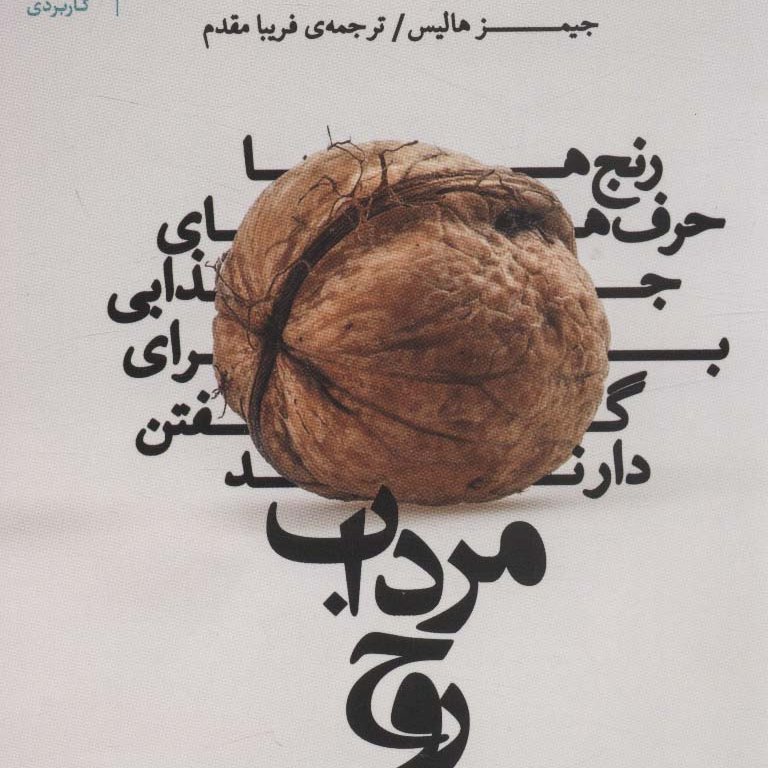 کاربردی
جیمز هالیس / ترجمه‌ی فریبا مقدم
رنج‌ها
حرف‌های
جذابی
برای
گفتن
دارند
مرداب
روح